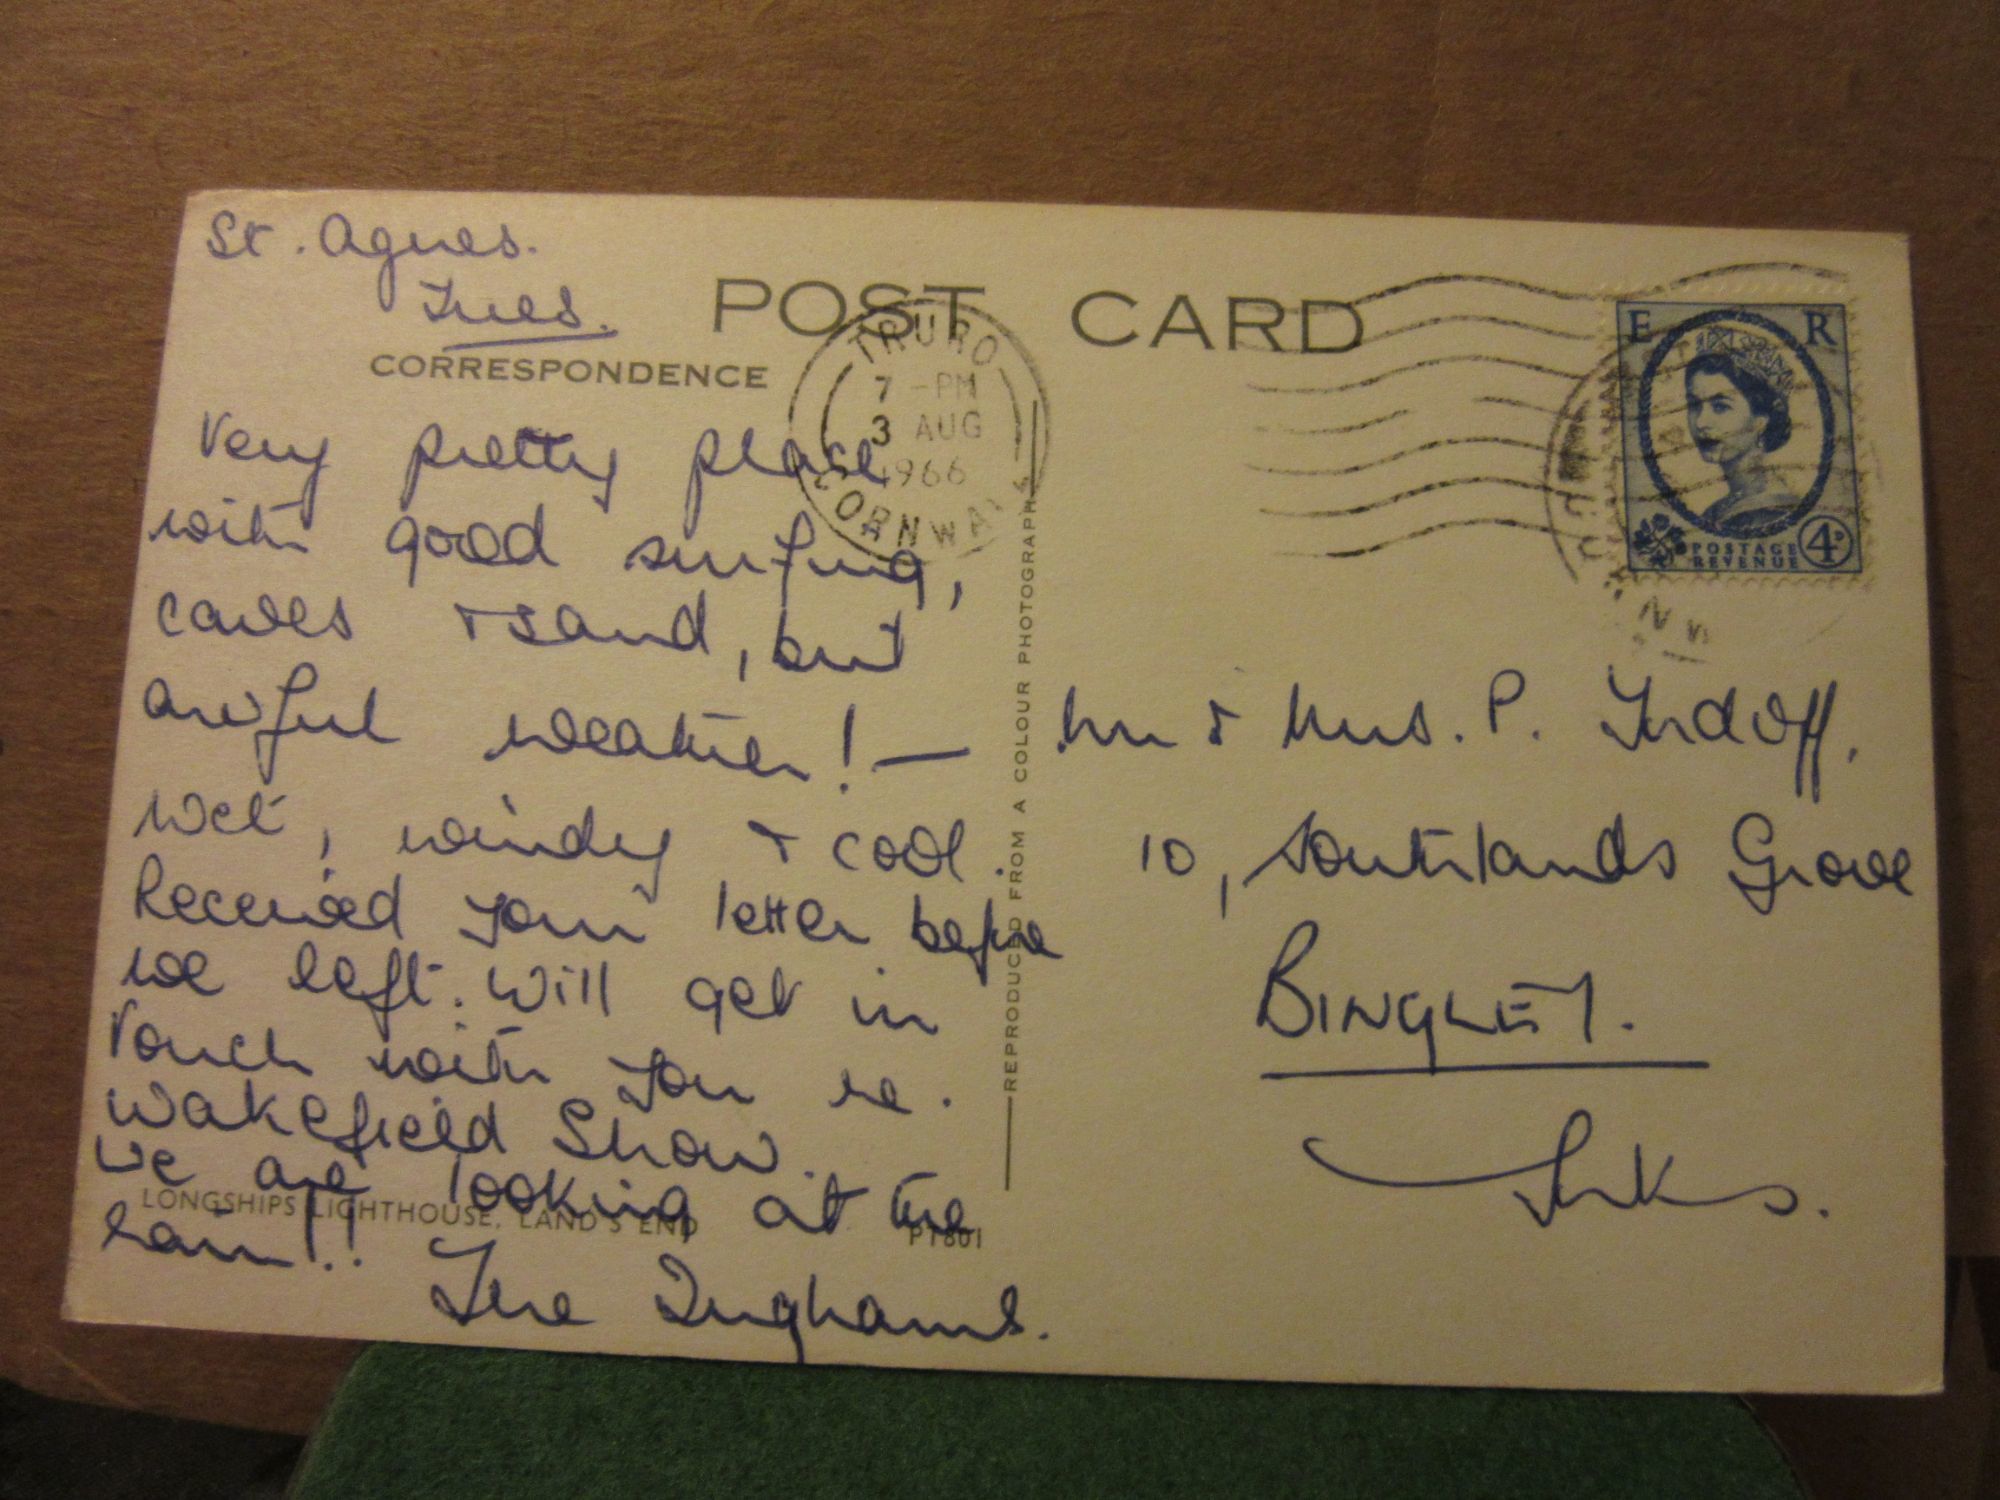 St. Agnes.
Tues.
POST CARD
CORRESPONDENCE
TRURO
7 - PM
3 AUG
1966
CORNWALL
E R
POSTAGE
REVENUE
4D
Very pretty place
with good surfing,
caves & sand, but
awful weather! —
wet, windy & cool.
Received your letter before
we left. Will get in
touch with you re.
Wakefield Show.
We are looking at the
rain!!
The Inghams.
REPRODUCED FROM A COLOUR PHOTOGRAPH
LONGSHIPS LIGHTHOUSE, LAND'S END
PT801
Mr & Mrs. P. Tordoff,
10, Southlands Grove
BINGLEY.
Yorks.